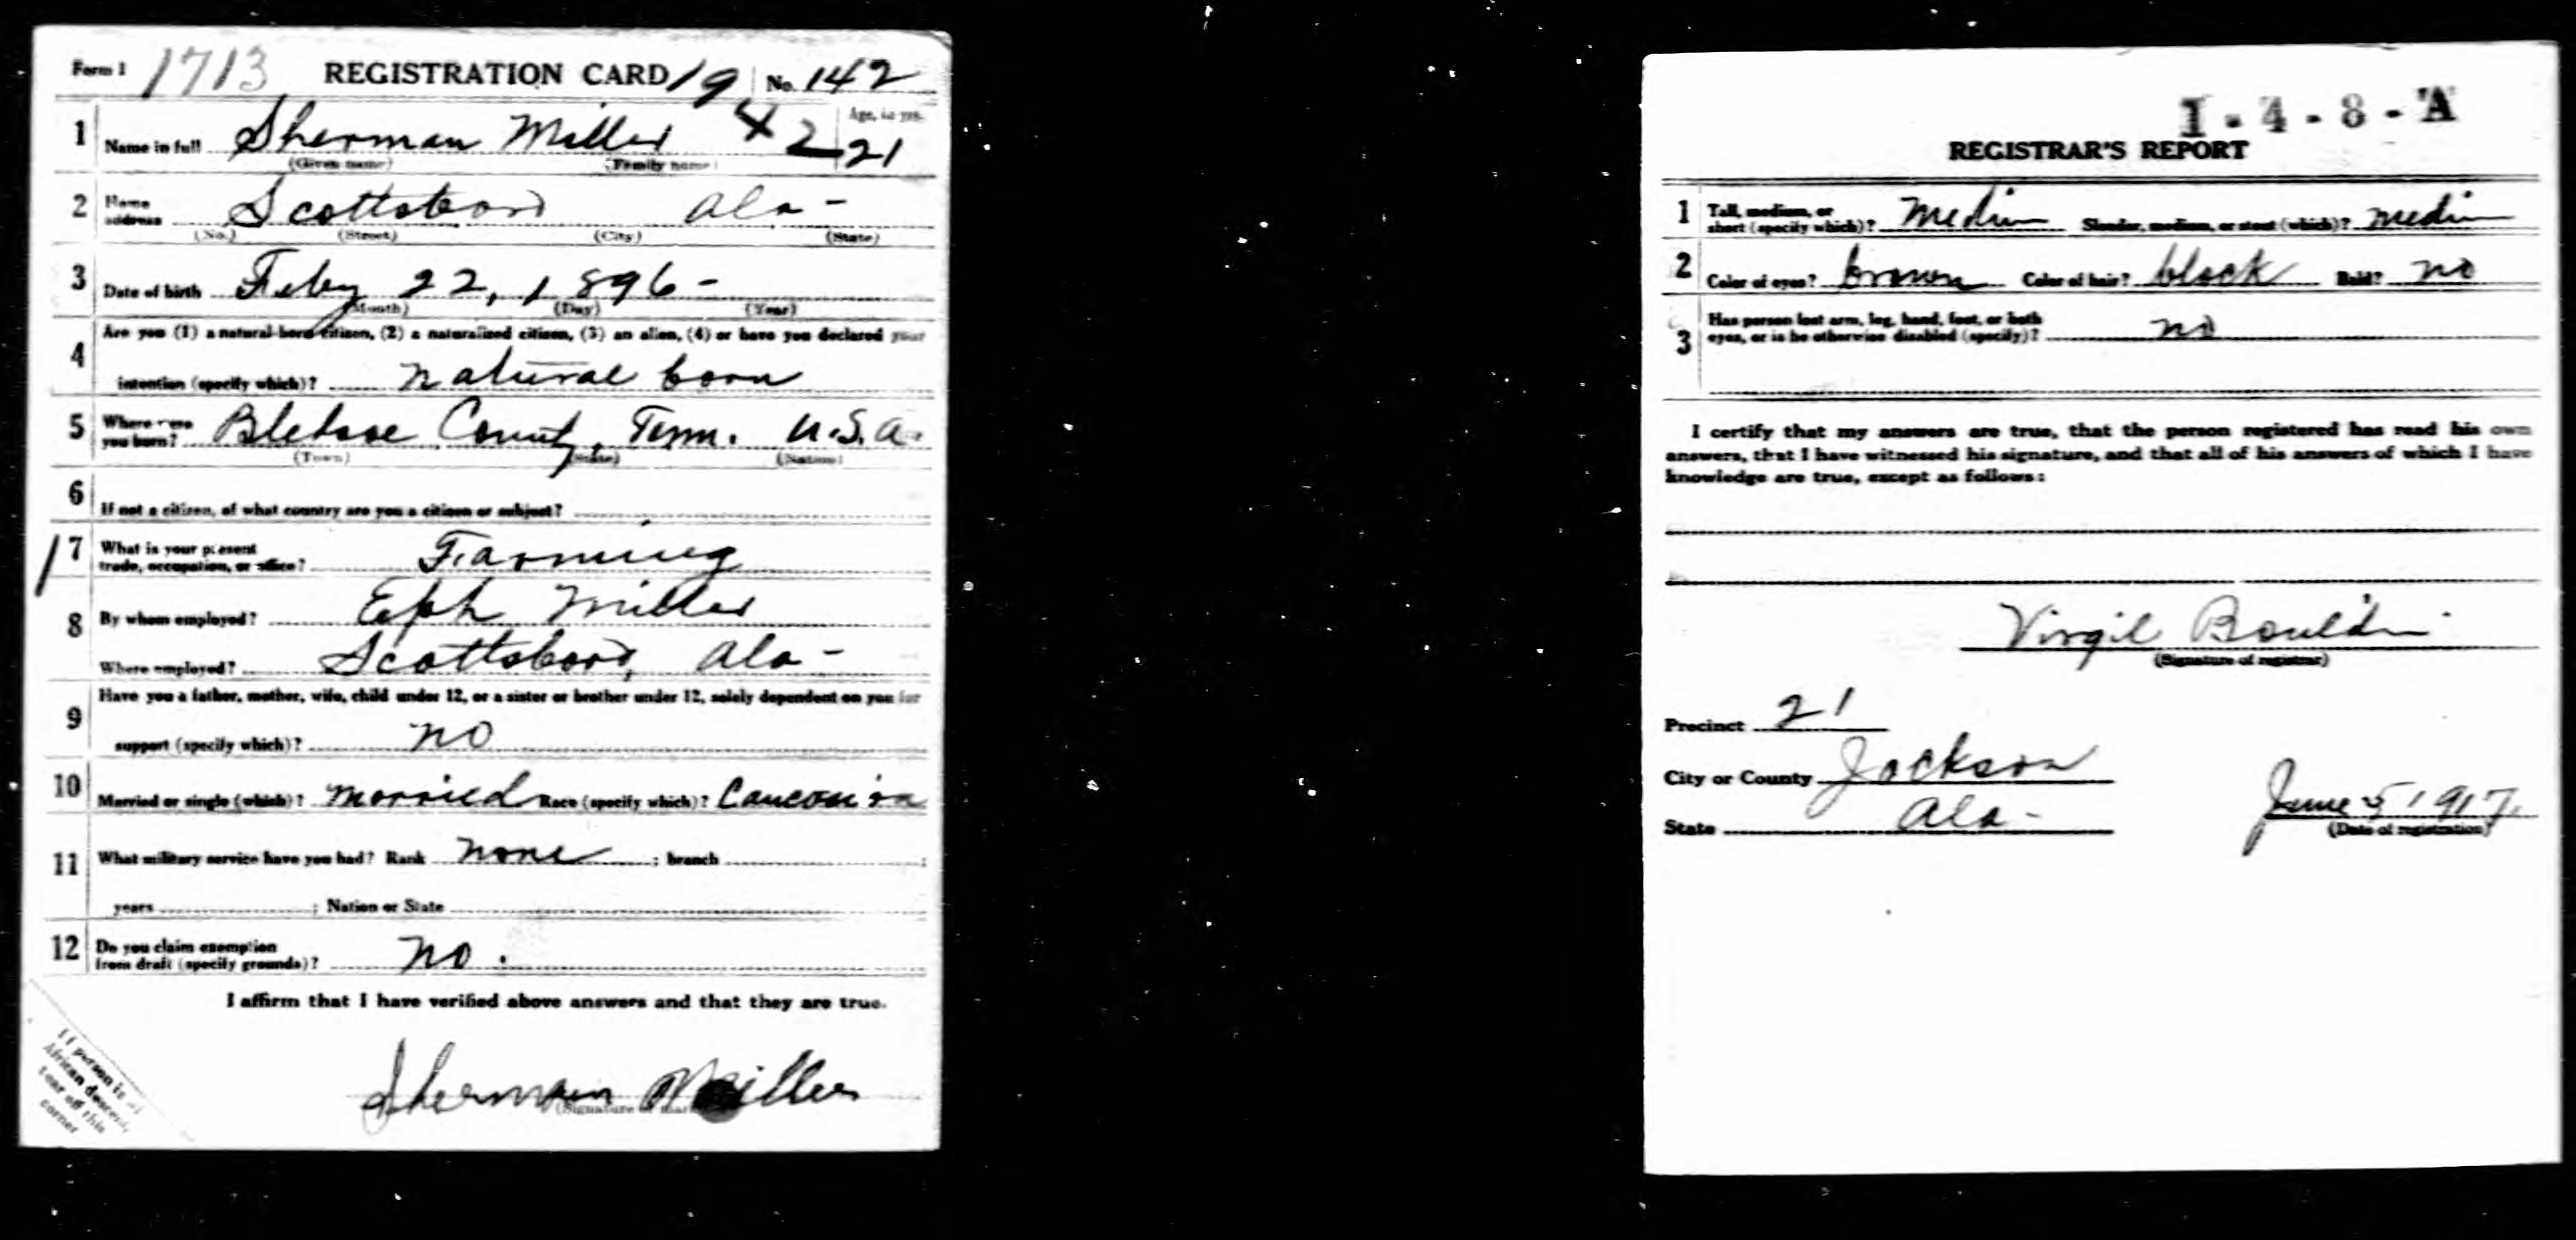 Form 1 1713 REGISTRATION CARD 19 No. 142
1 Name in full Sherman Miller 42 Age, in yrs. 21
(Given name) (Family name)
2 Home address Scottsboro Ala-
(No.) (Street) (City) (State)
3 Date of birth Feby 22, 1896-
(Month) (Day) (Year)
4 Are you (1) a natural-born citizen, (2) a naturalized citizen, (3) an alien, (4) or have you declared your
intention (specify which)? natural born
5 Where were you born? Bledsoe County, Tenn. U.S.A.
(Town) (State) (Nation)
6 If not a citizen, of what country are you a citizen or subject?
7 What is your present trade, occupation, or office? Farming
8 By whom employed? Eph Miller
Where employed? Scottsboro, Ala-
9 Have you a father, mother, wife, child under 12, or a sister or brother under 12, solely dependent on you for
support (specify which)? no
10 Married or single (which)? married Race (specify which)? Caucasian
11 What military service have you had? Rank none ; branch ;
years ; Nation or State
12 Do you claim exemption from draft (specify grounds)? no.
I affirm that I have verified above answers and that they are true.
Sherman Miller
(Signature or mark)
If person is of
African descent,
tear off this
corner
1-4-8-A
REGISTRAR'S REPORT
1 Tall, medium, or short (specify which)? medium Slender, medium, or stout (which)? medium
2 Color of eyes? brown Color of hair? black Bald? no
3 Has person lost arm, leg, hand, foot, or both eyes, or is he otherwise disabled (specify)? no
I certify that my answers are true, that the person registered has read his own
answers, that I have witnessed his signature, and that all of his answers of which I have
knowledge are true, except as follows:
Virgil Bouldin
(Signature of registrar)
Precinct 21
City or County Jackson
State Ala-
June 5 1917.
(Date of registration)